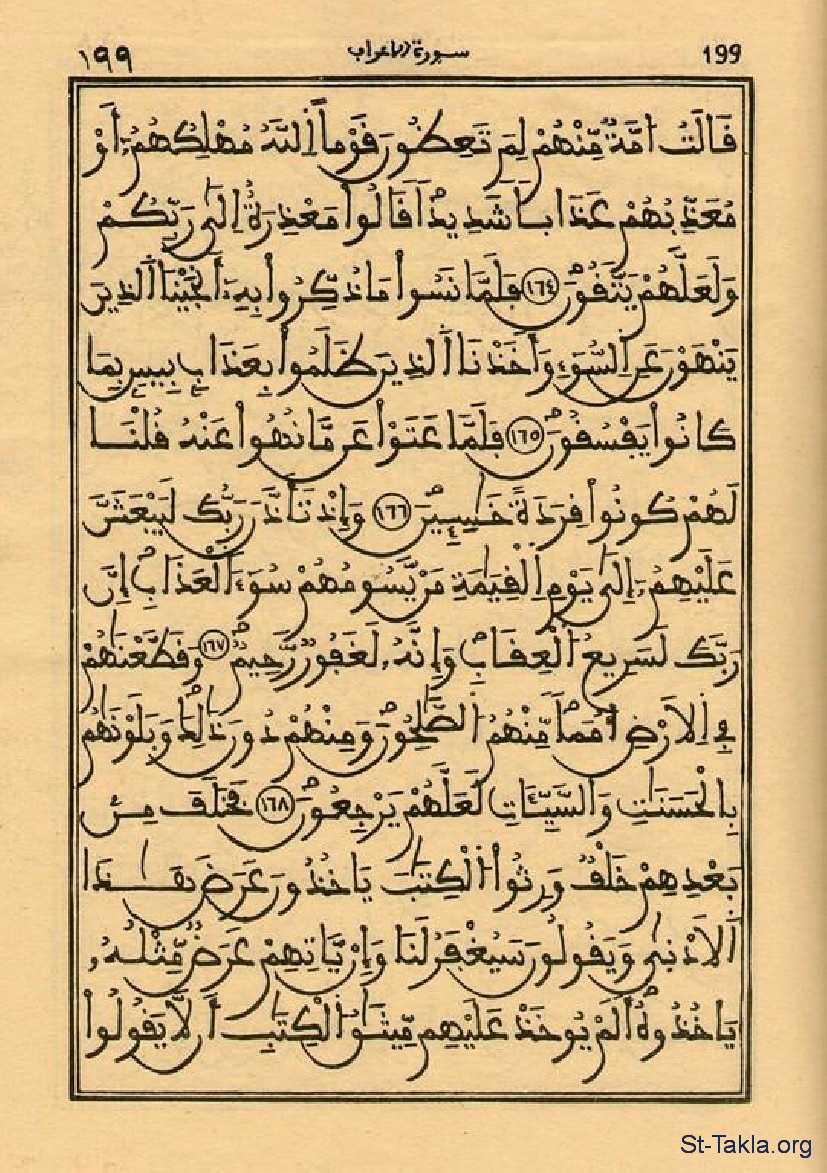 199 سورة الاعراف ١٩٩
قَالَتُ امَّةٌ مِّنْهُمْ لِمَ تَعِظُونَ قَوْماً اِللَّهُ مُهْلِكُهُمُۥ أَوْ
مُعَذِّبُهُمْ عَذَاباً شَدِيداً قَالُواْ مَعْذِرَةٌ اِلَىٰ رَبِّكُمْ
وَلَعَلَّهُمْ يَتَّقُونَ ١٦٤ فَلَمَّا نَسُواْ مَا ذُكِّرُواْ بِهِۦ أَنجَيْنَا اَلذِينَ
يَنْهَوْنَ عَنِ اِلسُّوٓءِ وَأَخَذْنَا اَلذِينَ ظَلَمُواْ بِعَذَابٍ بِيسٍ بِمَا
كَانُواْ يَفْسُقُونَ ١٦٥ فَلَمَّا عَتَوْاْ عَن مَّا نُهُواْ عَنْهُ قُلْنَا
لَهُمْ كُونُواْ قِرَدَةً خَٰسِـِٕينَ ١٦٦ وَإِذْ تَأَذَّنَ رَبُّكَ لَيَبْعَثَنَّ
عَلَيْهِمُۥ إِلَىٰ يَوْمِ اِلْقِيَٰمَةِ مَنْ يَّسُومُهُمْ سُوٓءَ اَلْعَذَابِ إِنَّ
رَبَّكَ لَسَرِيعُ اُلْعِقَابِ وَإِنَّهُۥ لَغَفُورٌ رَّحِيمٌ ١٦٧ وَقَطَّعْنَٰهُمْ
فِي اِلاَرْضِ أُمَماً مِّنْهُمُ اُلصَّٰلِحُونَ وَمِنْهُمْ دُونَ ذَٰلِكَ وَبَلَوْنَٰهُم
بِالْحَسَنَٰتِ وَالسَّيِّـَٔاتِ لَعَلَّهُمْ يَرْجِعُونَ ١٦٨ فَخَلَفَ مِنۢ
بَعْدِهِمْ خَلْفٌ وَرِثُواْ اُلْكِتَٰبَ يَاخُذُونَ عَرَضَ هَٰذَا
اَلاَدْنَىٰ وَيَقُولُونَ سَيُغْفَرُ لَنَا وَإِنْ يَّاتِهِمْ عَرَضٌ مِّثْلُهُۥ
يَاخُذُوهُ أَلَمْ يُوخَذْ عَلَيْهِم مِّيثَٰقُ اُلْكِتَٰبِ أَن لاَّ يَقُولُواْ
St-Takla.org